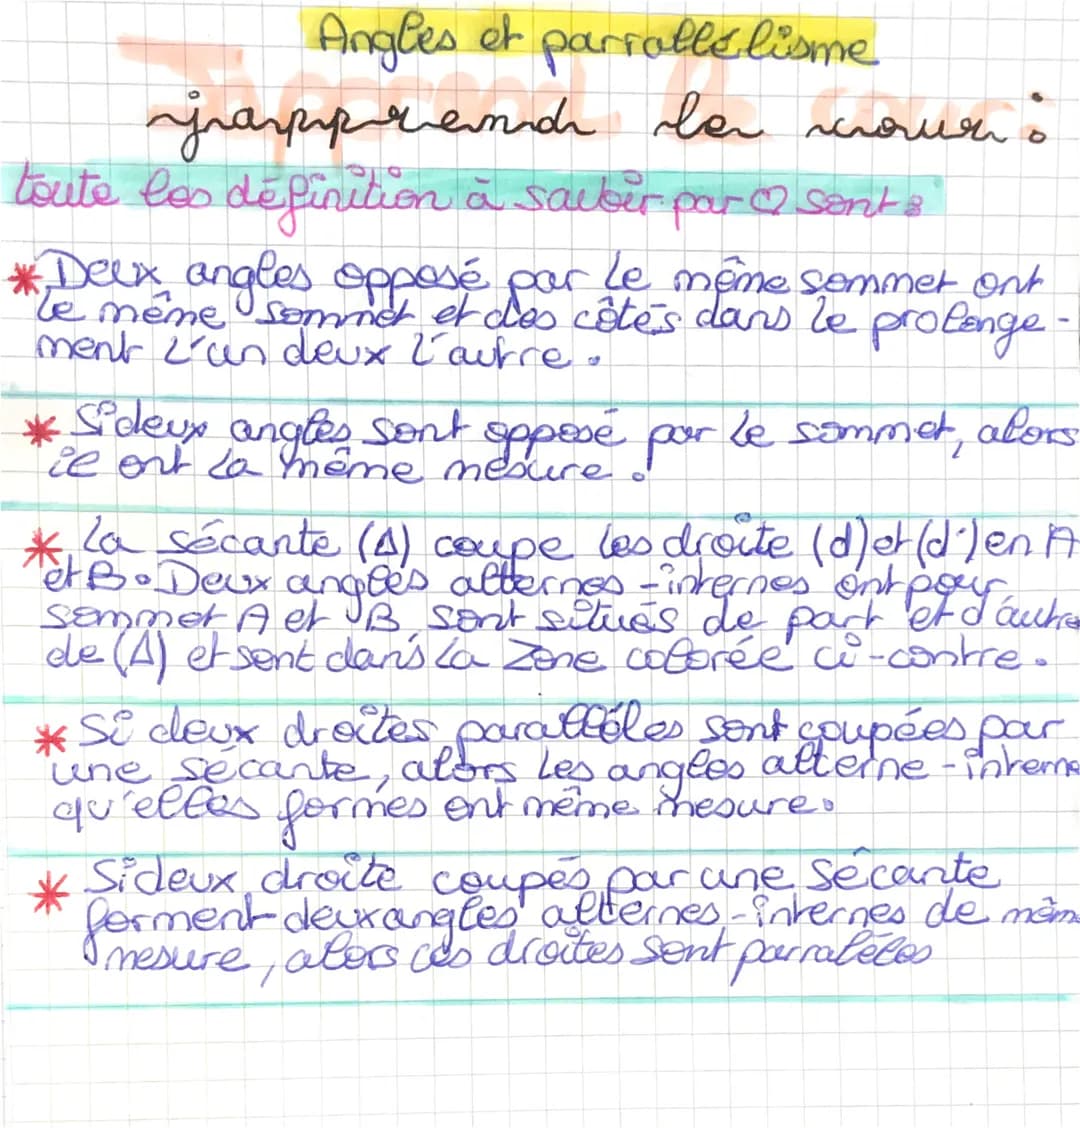 Angles et parrallélisme
j'apprend le cour :
toute les définition à savoir par ♡ sont :
* Deux angles opposé par le même sommet ont
le même sommet et des côtés dans le prolonge-
ment l'un deux l'autre.
* Si deux angles sont opposé par le sommet, alors
il ont la même mesure.
* La sécante (Δ) coupe les droite (d) et (d') en A
et B. Deux angles alternes-internes ont pour
sommet A et B, sont situés de part et d'autre
de (Δ) et sont dans la zone colorée ci-contre.
* Si deux droites parallèles sont coupées par
une sécante, alors les angles alterne-interne
qu'elles formes ont même mesure.
* Si deux droite coupés par une sécante
forment deux angles alternes-internes de mêm
mesure, alors ces droites sont parralèles